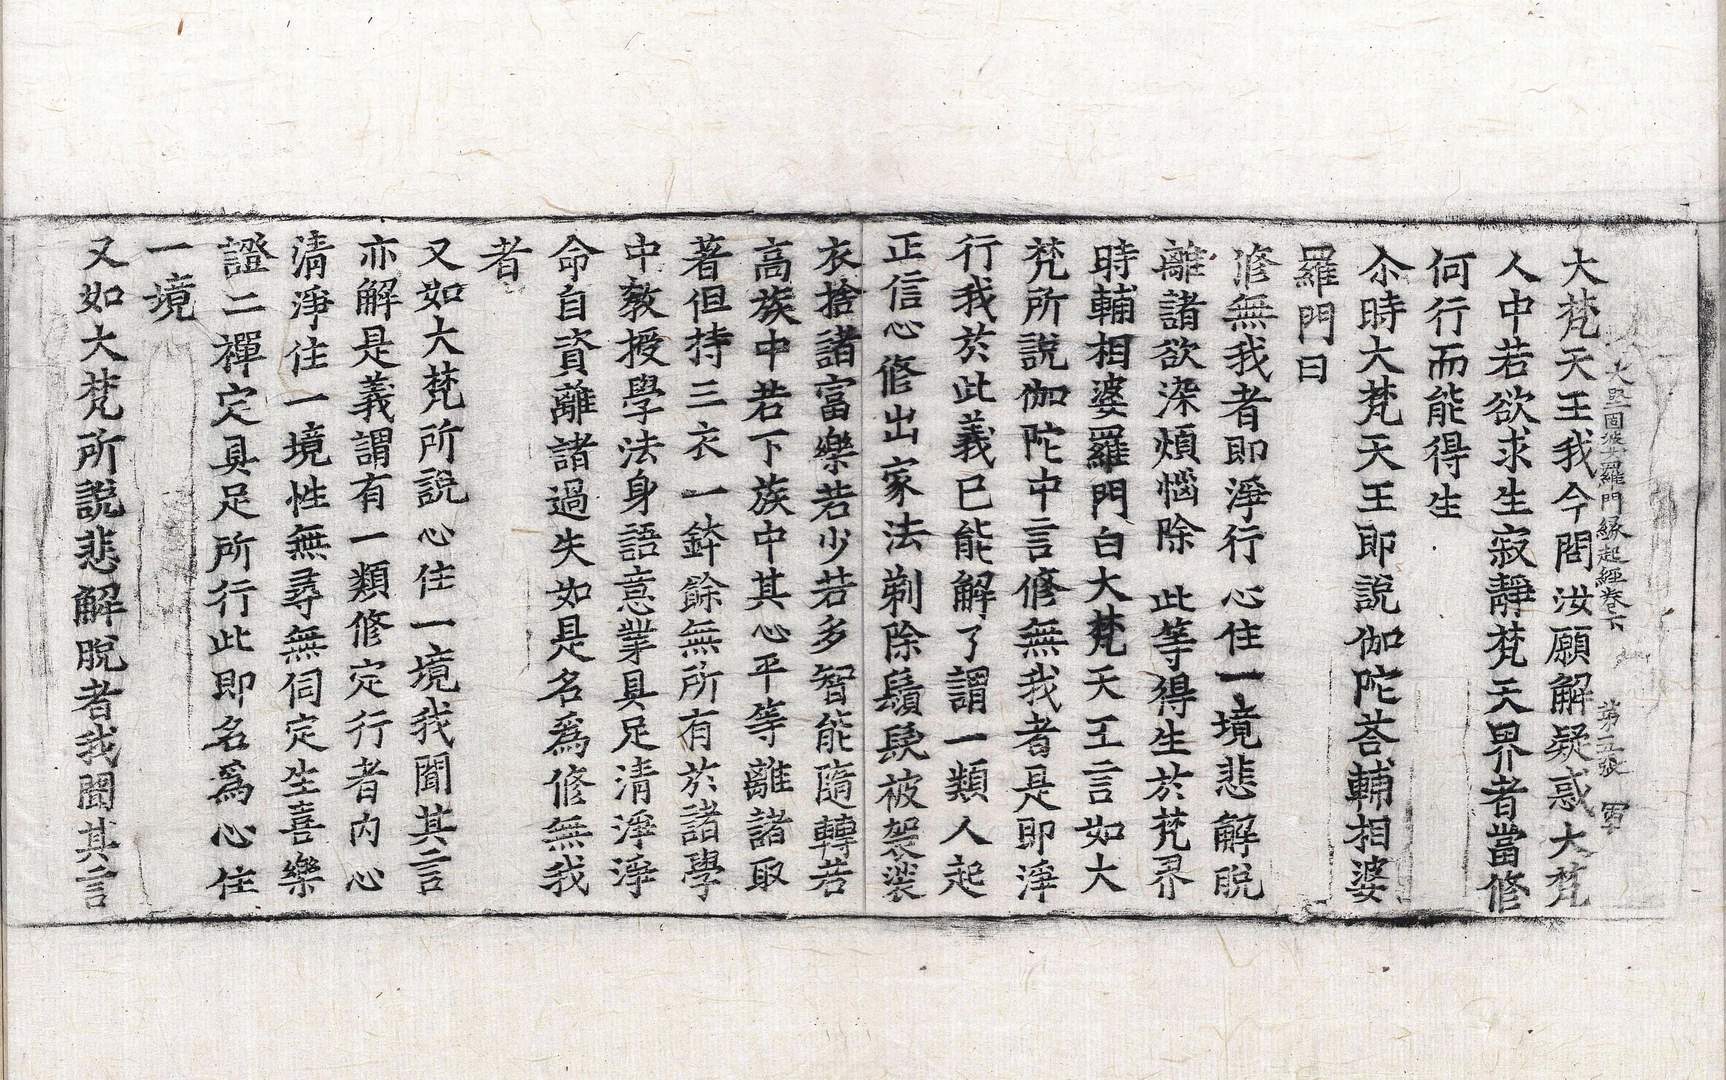 大堅固婆羅門緣起經卷下 第五張 軍
大梵天王我今問汝願解疑惑大梵
人中若欲求生寂靜梵天界者當修
何行而能得生
尒時大梵天王即說伽陀荅輔相婆
羅門曰
修無我者即淨行 心住一境悲解脫
離諸欲染煩惱除 此等得生於梵界
時輔相婆羅門白大梵天王言如大
梵所說伽陀中言修無我者是即淨
行我於此義已能解了謂一類人起
正信心修出家法剃除鬚髮被袈裟
衣捨諸富樂若少若多智能隨轉若
高族中若下族中其心平等離諸取
著但持三衣一鉢餘無所有於諸學
中教授學法身語意業具足清淨淨
命自資離諸過失如是名爲修無我
者
又如大梵所說心住一境我聞其言
亦解是義謂有一類修定行者內心
清淨住一境性無尋無伺定生喜樂
證二禪定具足所行此即名爲心住
一境
又如大梵所說悲解脫者我聞其言